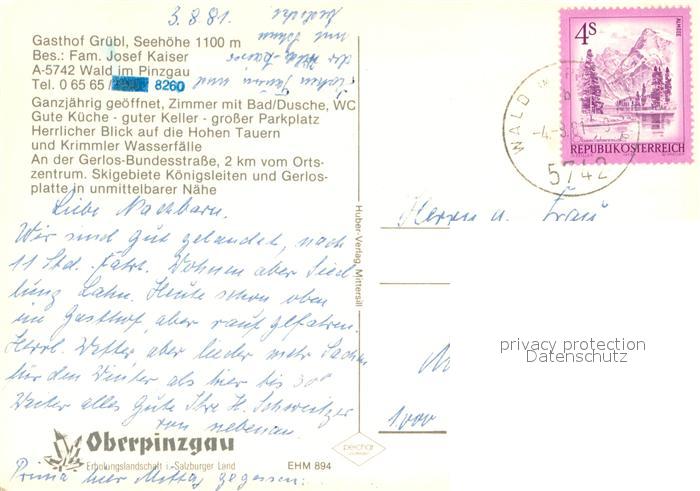 3.8.81.
Gasthof Grübl, Seehöhe 1100 m
Bes.: Fam. Josef Kaiser
A-5742 Wald im Pinzgau
Tel. 0 65 65 / 8260
Ganzjährig geöffnet, Zimmer mit Bad/Dusche, WC
Gute Küche - guter Keller - großer Parkplatz
Herrlicher Blick auf die Hohen Tauern
und Krimmler Wasserfälle
An der Gerlos-Bundesstraße, 2 km vom Orts-
zentrum. Skigebiete Königsleiten und Gerlos-
platte in unmittelbarer Nähe
Liebe Nachbarn.
Wir sind gut gelandet, nach
11 Std. Fahrt. Wohnen aber Sied
lung Lahn. Heute schon oben
im Gasthof, aber rauf gefahren.
Herrl. Wetter aber lieder mehr Sachen
für den Winter als hier bis 30°
Weiter alles Gute Ihre H. Schweitzer
von nebenan.
Oberpinzgau
Erholungslandschaft i. Salzburger Land
EHM 894
Prima hier Mittag gegessen.
Huber-Verlag, Mittersill
4S
ALMSEE
REPUBLIK ÖSTERREICH
WALD IM
5742
Herrn u. Frau
1000
privacy protection
Datenschutz